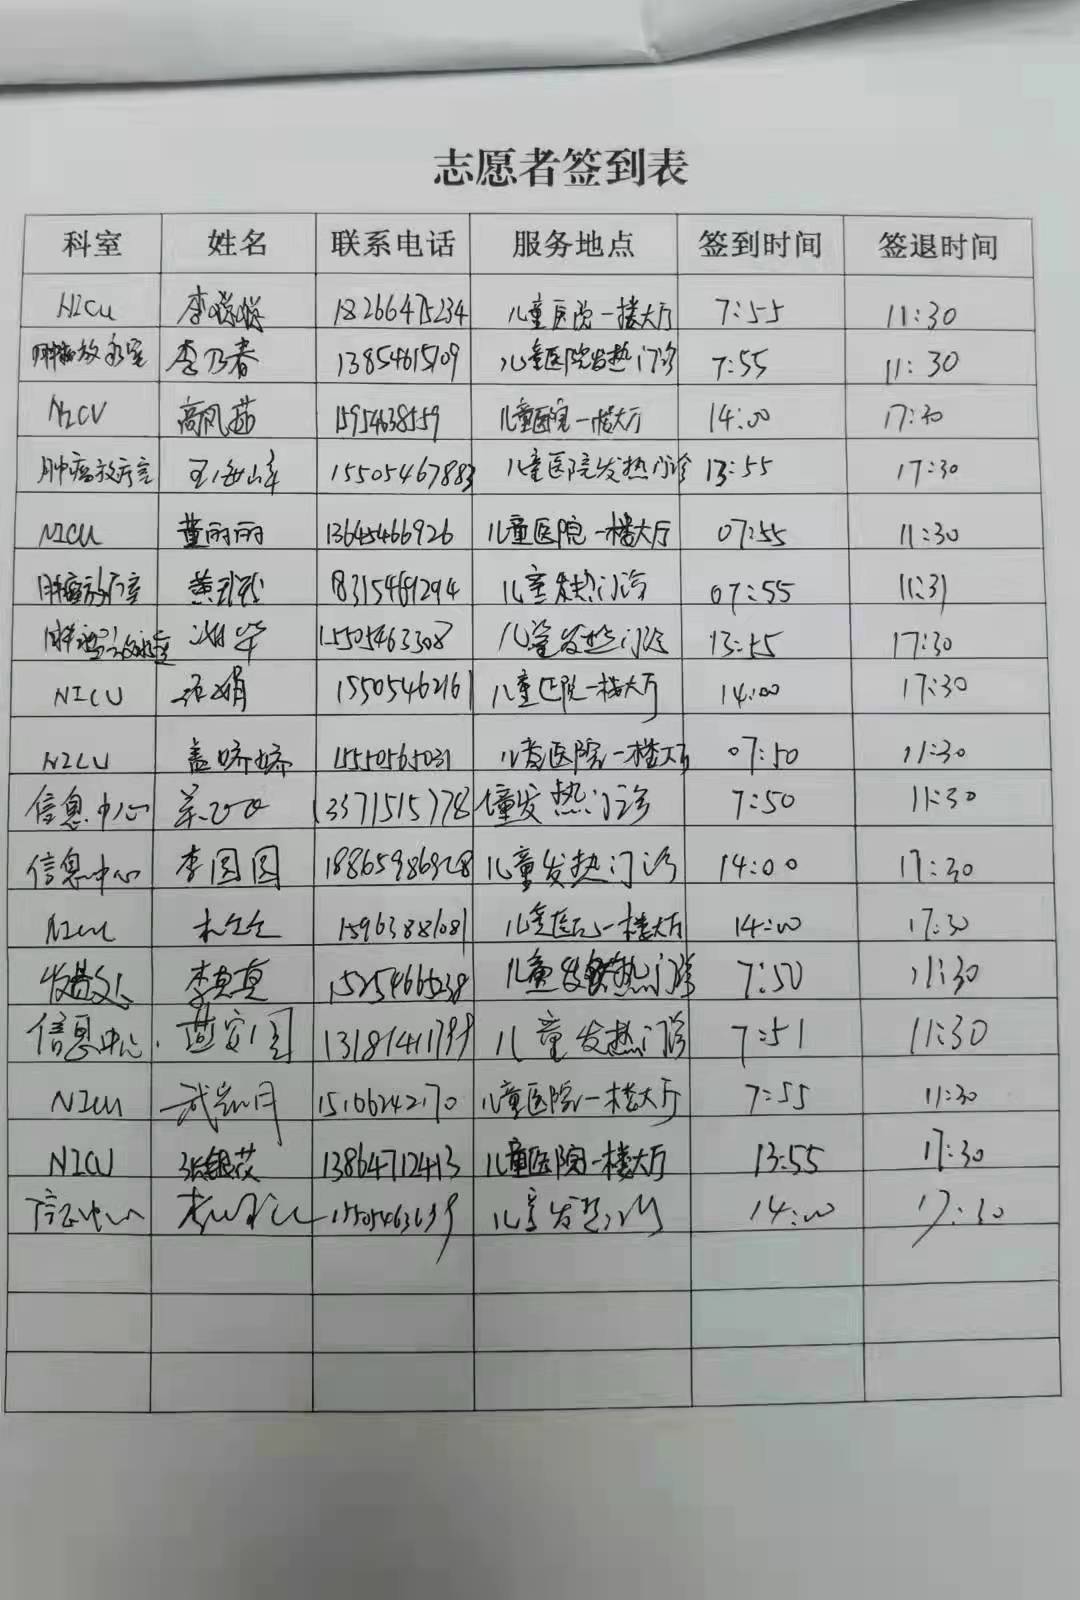 志愿者签到表
科室 姓名 联系电话 服务地点 签到时间 签退时间
NICU 李 18266475234 儿童医院一楼大厅 7:55 11:30
李乃春 13854615109 儿童医院发热门诊 7:55 11:30
NICU 高凤茹 15954638559 儿童医院一楼大厅 14:00 17:30
肿瘤放疗室 王海峰 15505467883 儿童医院发热门诊 13:55 17:30
NICU 董丽丽 13645466926 儿童医院一楼大厅 07:55 11:30
肿瘤放疗室 18315461294 儿童发热门诊 07:55 11:31
15505463308 儿童发热门诊 13:55 17:30
NICU 张娟 15505462161 儿童医院一楼大厅 14:00 17:30
NICU 盖娇娇 15550565031 儿童医院一楼大厅 07:50 11:30
信息中心 13371515778 儿童发热门诊 7:50 11:30
信息中心 李园园 18865986928 儿童发热门诊 14:00 17:30
NICU 15963881681 儿童医院一楼大厅 14:00 17:30
李真真 15254665238 儿童发热门诊 7:50 11:30
信息中心 燕安国 13181411799 儿童发热门诊 7:51 11:30
NICU 15166242170 儿童医院一楼大厅 7:55 11:30
NICU 张银苡 13864712413 儿童医院一楼大厅 13:55 17:30
信息中心 儿童发热门诊 14:00 17:30